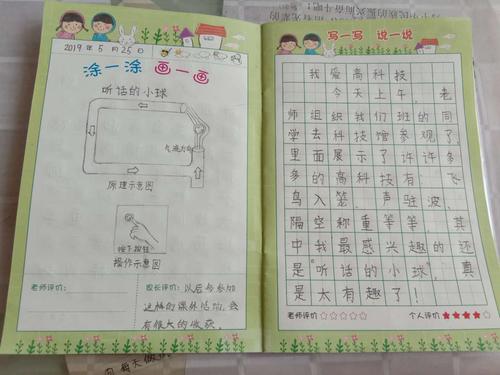 2019年5月25日
涂一涂 画一画
听话的小球
气流方向
原理示意图
按下按钮
操作示意图
老师评价:
家长评价: 以后多参加
这样的课外活动,会
有很大的收获。
写一写 说一说
我爱高科技
今天上午,老
师组织我们班的同
学去科技馆参观了,
里面展示了许许多
多的高科技有飞
鸟入笼,声驻波,
隔空称重等等,其
中我最感兴趣的还
是“听话的小球”,真
是太有趣了!
老师评价☆☆☆☆☆ 个人评价★★★★☆